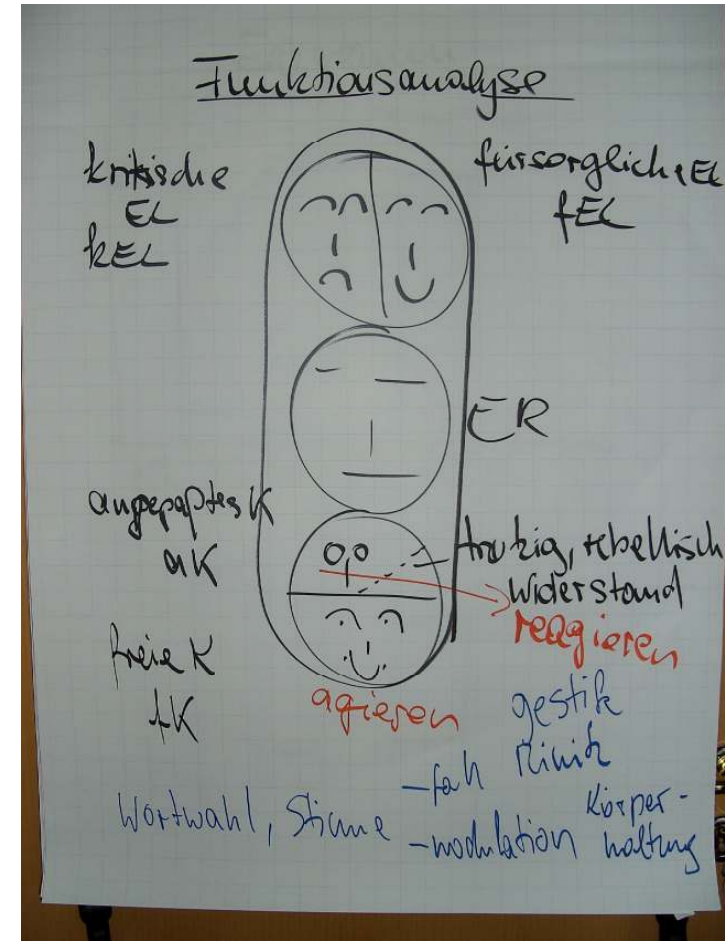 Funktionsanalyse
kritische
EL
kEL
fürsorgliche EL
fEL
ER
angepaßtes K
aK
trotzig, rebellisch
Widerstand
reagieren
freie K
fK
agieren
gestik
Mimik
Wortwahl, Stimme
-fall
-modulation
Körper-
haltung